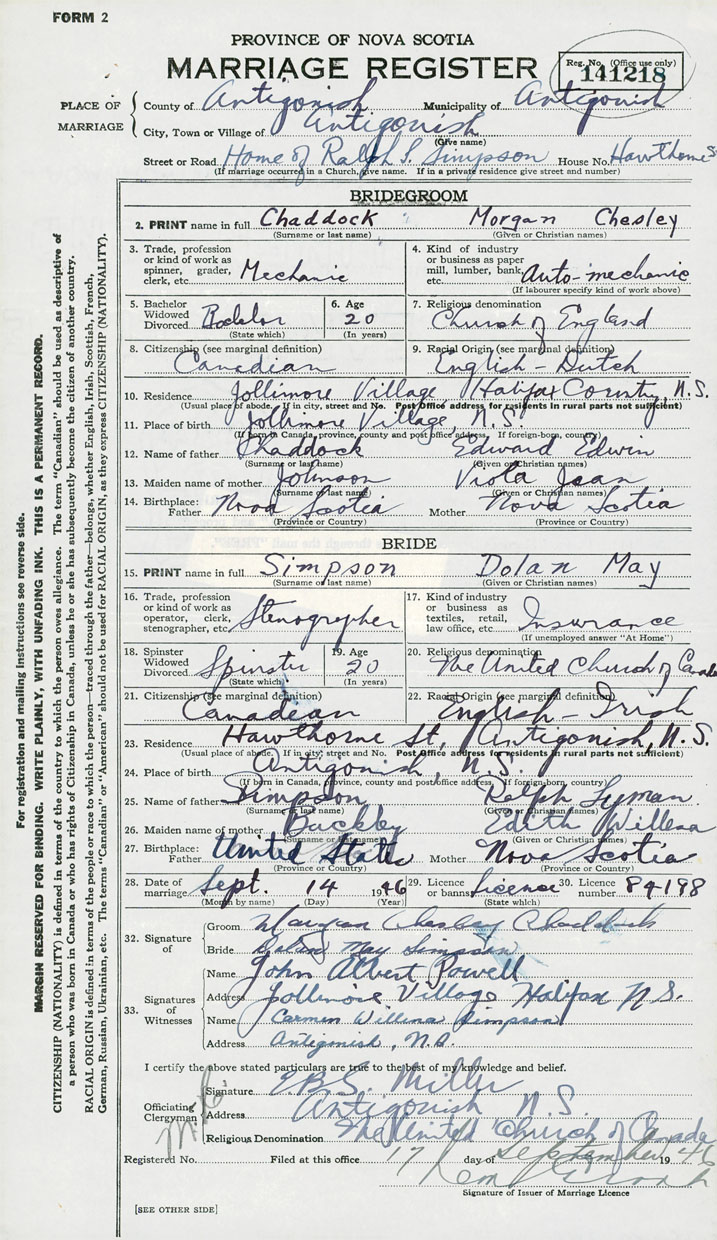 FORM 2
PROVINCE OF NOVA SCOTIA
MARRIAGE REGISTER
Reg. No. (Office use only)
141218
PLACE OF MARRIAGE
County of Antigonish Municipality of Antigonish
City, Town or Village of Antigonish
(Give name)
Street or Road Home of Ralph S. Simpson House No. Hawthorne S
(If marriage occurred in a Church, give name. If in a private residence give street and number)
BRIDEGROOM
2. PRINT name in full Chaddock Morgan Chesley
(Surname or last name) (Given or Christian names)
3. Trade, profession or kind of work as spinner, grader, clerk, etc. Mechanic
4. Kind of industry or business as paper mill, lumber, bank, etc. Auto-mechanic
(If labourer specify kind of work above)
5. Bachelor Widowed Divorced Bachelor
(State which)
6. Age 20
(In years)
7. Religious denomination
Church of England
8. Citizenship (see marginal definition)
Canadian
9. Racial Origin (see marginal definition)
English - Dutch
10. Residence Jollimore Village Halifax County, N.S.
(Usual place of abode. If in city, street and No. Post Office address for residents in rural parts not sufficient)
11. Place of birth Jollimore Village, N.S.
(If born in Canada, province, county and post office address. If foreign-born, country)
12. Name of father Chaddock Edward Edwin
(Surname or last name) (Given or Christian names)
13. Maiden name of mother Johnson Viola Jean
(Surname or last name) (Given or Christian names)
14. Birthplace: Father Nova Scotia Mother Nova Scotia
(Province or Country) (Province or Country)
BRIDE
15. PRINT name in full Simpson Dolan May
(Surname or last name) (Given or Christian names)
16. Trade, profession or kind of work as operator, clerk, stenographer, etc. Stenographer
17. Kind of industry or business as textiles, retail, law office, etc. Insurance
(If unemployed answer "At Home")
18. Spinster Widowed Divorced Spinster
(State which)
19. Age 20
(In years)
20. Religious denomination
The United Church of Canada
21. Citizenship (see marginal definition)
Canadean
22. Racial Origin (see marginal definition)
English - Irish
23. Residence Hawthorne St, Antigonish, N.S.
(Usual place of abode. If in city, street and No. Post Office address for residents in rural parts not sufficient)
24. Place of birth Antigonish, N.S.
(If born in Canada, province, county and post office address. If foreign-born, country)
25. Name of father Simpson Ralph Lyman
(Surname or last name) (Given or Christian names)
26. Maiden name of mother Buckley Edith Willena
(Given or Christian names)
27. Birthplace: Father United States Mother Nova Scotia
(Province or Country) (Province or Country)
28. Date of marriage Sept. 14 1946
(Month by name) (Day) (Year)
29. Licence or banns licence
(State which)
30. Licence number 84198
32. Signature of
Groom Morgan Chesley Chaddock
Bride Dolan May Simpson
33. Signatures of Witnesses
Name John Albert Powell
Address Jollimore Village Halifax N.S.
Name Carmen Willena Simpson
Address Antigonish, N.S.
I certify the above stated particulars are true to the best of my knowledge and belief.
Officiating Clergyman
Signature E.B.S. Miller
Address Antigonish N.S.
Religious Denomination The United Church of Canada
Registered No. Filed at this office 17 day of September 1946
Signature of Issuer of Marriage Licence
[SEE OTHER SIDE]
For registration and mailing instructions see reverse side.
MARGIN RESERVED FOR BINDING. WRITE PLAINLY, WITH UNFADING INK. THIS IS A PERMANENT RECORD.
CITIZENSHIP (NATIONALITY) is defined in terms of the country to which the person owes allegiance. The term "Canadian" should be used as descriptive of
a person who was born in Canada or who has rights of Citizenship in Canada, unless he or she has subsequently become the citizen of another country.
RACIAL ORIGIN is defined in terms of the people or race to which the person—traced through the father—belongs, whether English, Irish, Scottish, French,
German, Russian, Ukrainian, etc. The terms "Canadian" or "American" should not be used for RACIAL ORIGIN, as they express CITIZENSHIP (NATIONALITY).